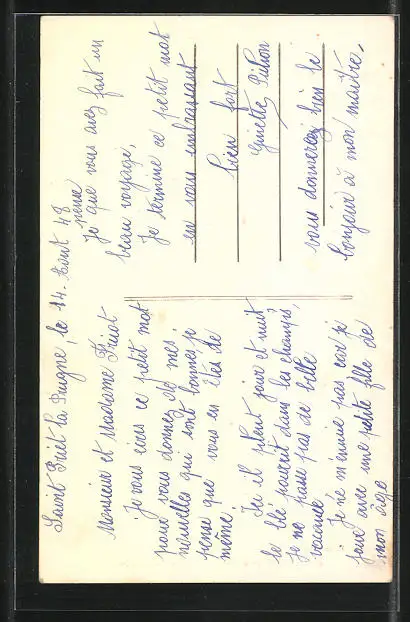 Saint Priest la Prugne, le 14 Août 48
Monsieur et Madame Friot
je vous ecris ce petit mot
pour vous donner de mes
nouvelles qui sont bonnes, je
pense que vous en êtes de
même.
Ici il pleut jour et nuit
le blé pourrit dans les champs,
je ne passe pas de belle
vacance
Je ne m'ennuie pas car je
joue avec une petite fille de
mon âge
Je pense que vous avez fait un
beau voyage,
Je termine ce petit mot
en vous embrassant
bien fort
Ginette
vous donnerez bien le
bonjour à mon maître,